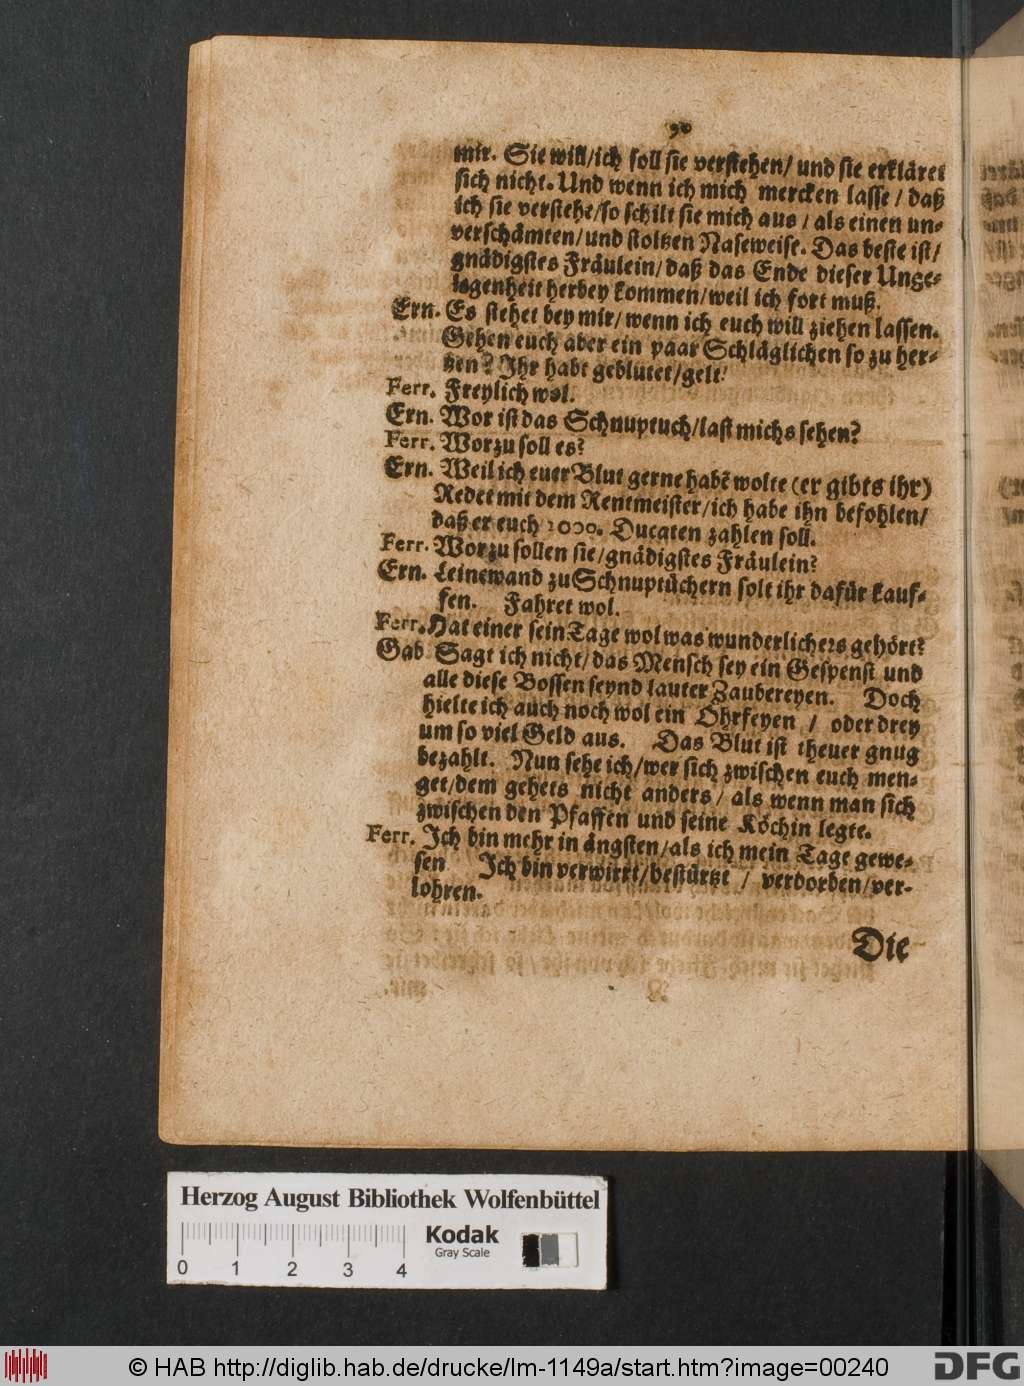 90
mir. Sie will/ich soll sie verstehen/ und sie erkläret
sich nicht. Und wenn ich mich mercken lasse / daß
ich sie verstehe/so schilt sie mich aus / als einen un-
verschämten/und stoltzen Naseweise. Das beste ist/
gnädigstes Fräulein/daß das Ende dieser Unge-
legenheit herbey kommen/weil ich fort muß.
Ern. Es stehet bey mir/wenn ich euch will ziehen lassen.
Gehen euch aber ein paar Schläglichen so zu her-
tzen? Ihr habt geblutet/gelt!
Ferr. Freylich wol.
Ern. Wor ist das Schnuptuch/last michs sehen?
Ferr. Worzu soll es?
Ern. Weil ich euer Blut gerne habẽ wolte (er gibts ihr)
Redet mit dem Rentmeister/ich habe ihn befohlen/
daß er euch 1000. Ducaten zahlen soll.
Ferr. Worzu sollen sie/gnädigstes Fräulein?
Ern. Leinewand zu Schnuptüchern solt ihr dafür kauf-
fen. Fahret wol.
Ferr. Hat einer sein Tage wol was wunderlichers gehört?
Gab Sagt ich nicht/das Mensch sey ein Gespenst und
alle diese Bossen seynd lauter Zaubereyen. Doch
hielte ich auch noch wol ein Ohrfeyen / oder drey
um so viel Geld aus. Das Blut ist theuer gnug
bezahlt. Nun sehe ich/wer sich zwischen euch men-
get/dem gehets nicht anders/ als wenn man sich
zwischen den Pfaffen und seine Köchin legte.
Ferr. Ich bin mehr in ängsten/als ich mein Tage gewe-
sen Ich bin verwirrt/bestürtzt / verdorben/ver-
lohren.
Die
Herzog August Bibliothek Wolfenbüttel
0 1 2 3 4
Kodak
Gray Scale
© HAB http://diglib.hab.de/drucke/lm-1149a/start.htm?image=00240
DFG